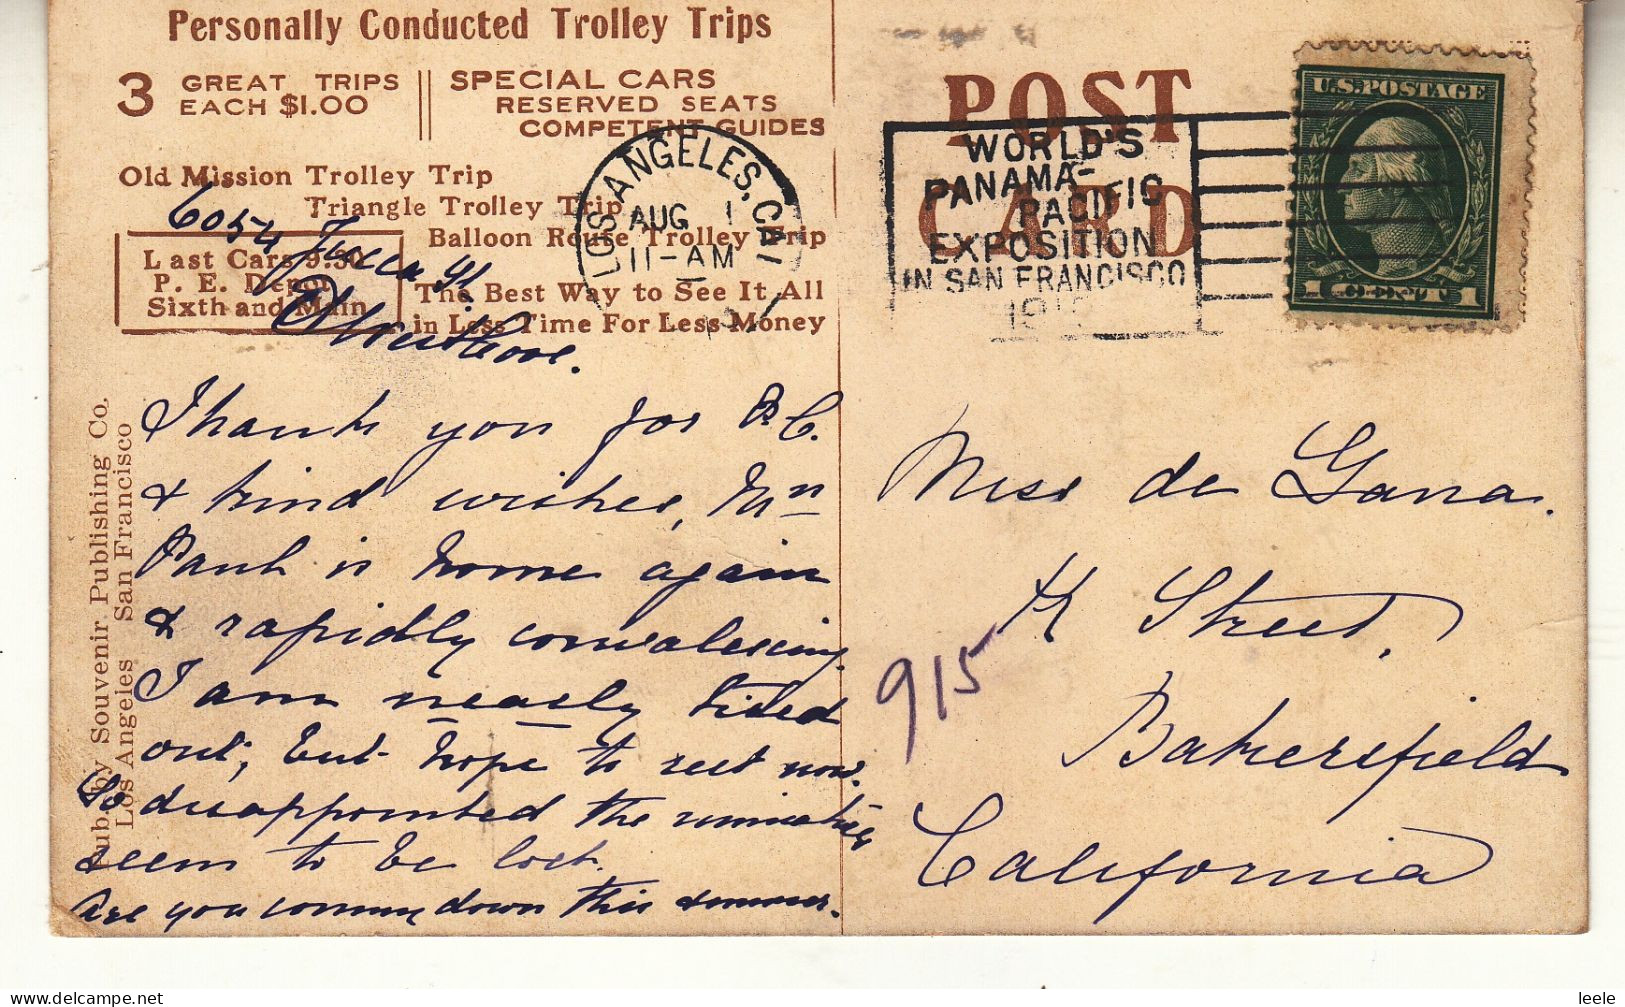 Personally Conducted Trolley Trips
3 GREAT TRIPS
EACH $1.00
SPECIAL CARS
RESERVED SEATS
COMPETENT GUIDES
Old Mission Trolley Trip
Triangle Trolley Trip
Balloon Route Trolley Trip
Last Cars 9:30
P. E. Depot
Sixth and Main
The Best Way to See It All
in Less Time For Less Money
6054 Yucca St
Pub. by Souvenir Publishing Co.
Los Angeles San Francisco
Thank you for P.C.
& kind wishes,
is home again
& rapidly convalescing.
I am nearly tired
out, but hope to rest now.
So disappointed the
seem to be lost.
Are you coming down this summer.
POST
CARD
LOS ANGELES, CAL
AUG 1
11-AM
WORLD'S
PANAMA-
PACIFIC
EXPOSITION
IN SAN FRANCISCO
U.S. POSTAGE
1 CENT 1
Miss de Gana.
K Street,
915
Bakersfield
California
leele